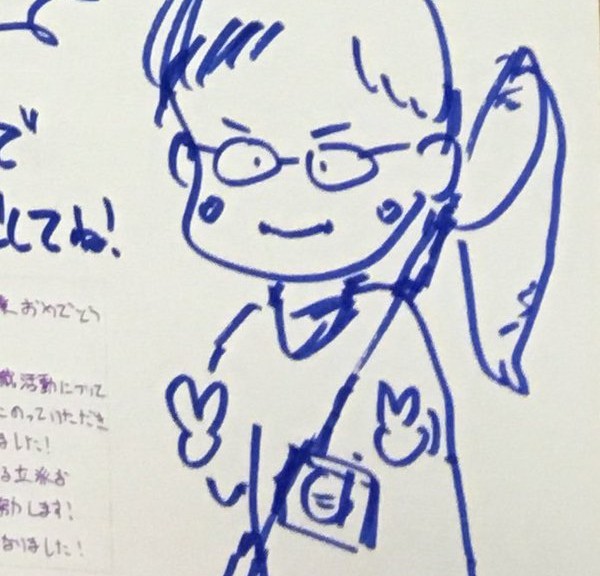 で
してね!
おめでとう
活動について
のっていただき
ました!
る立派な
します!
なりました!